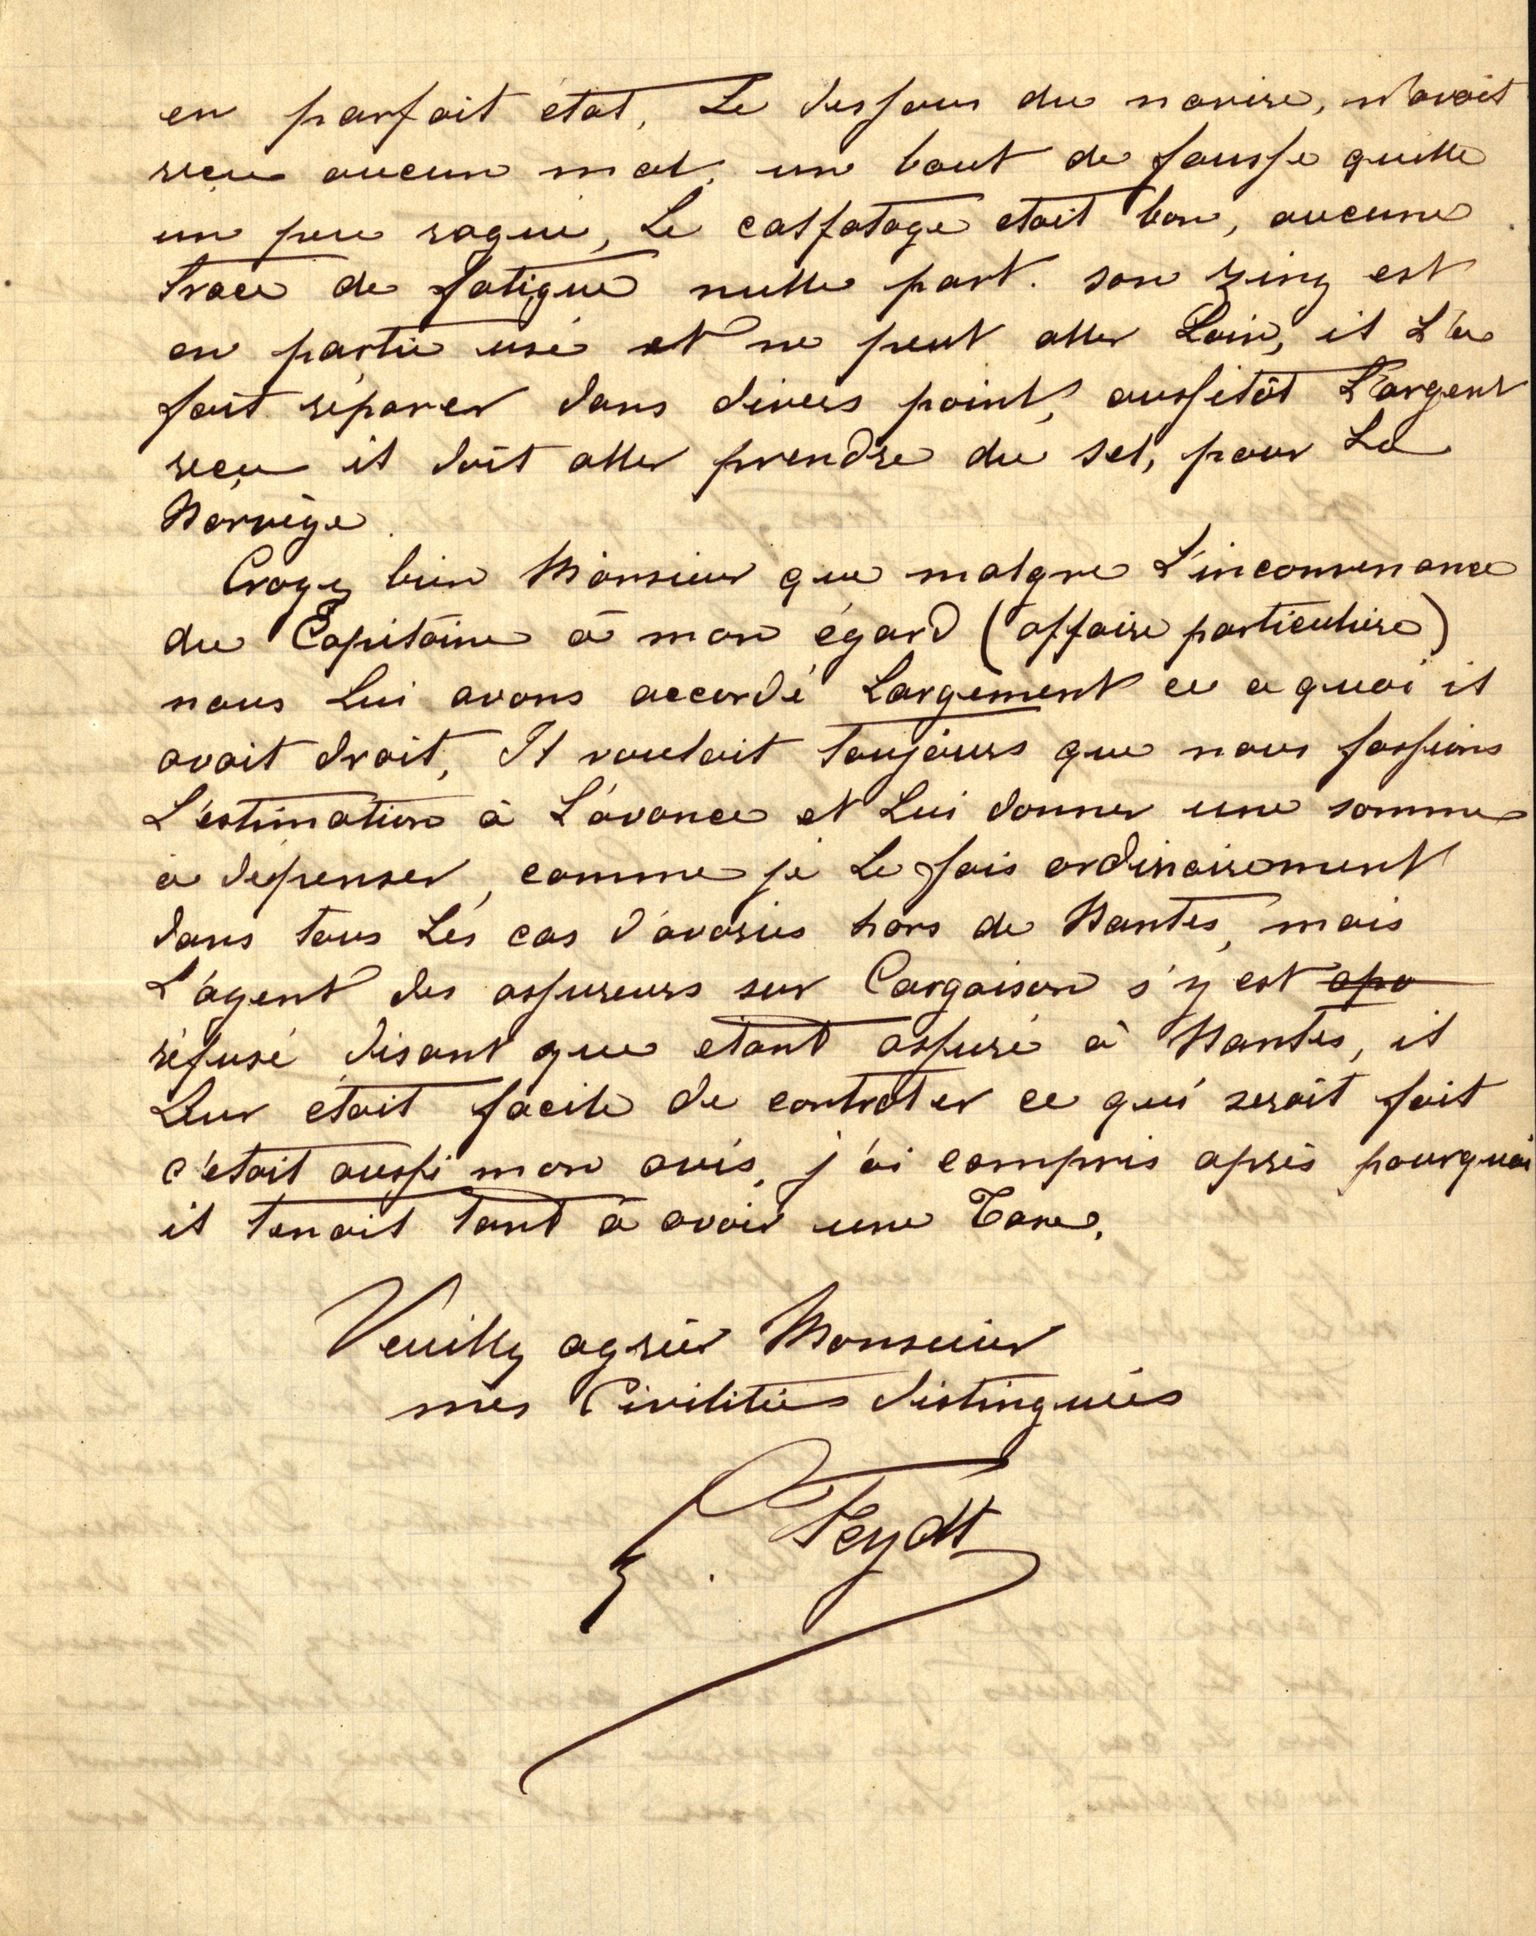 en parfait état, Le dessous du navire, n'avait
reçu aucun mal, un bout de fausse quille
un peu ragué, Le calfatage etait bon, aucune
trace de fatigue nulle part. son zing est
en partie usé et ne peut aller Loin, il L'a
fait réparer dans divers point, aussitôt L'argent
reçu il doit aller prendre du sel, pour La
Norvège.
Croyez bien Monsieur que malgre L'inconvenance
du Capitaine à mon égard (affaire particulière)
nous Lui avons accordé Largement ce a quoi il
avait droit, Il voulait toujours que nous fassions
L'estimation à L'avance et Lui donner une somme
à dépenser, comme je Le fais ordinairement
dans tous Les cas d'avaries hors de Nantes, mais
L'agent des assureurs sur Cargaison s'y est apo
réfusé disant que etant assuré à Nantes, il
Leur était facile de controler ce qui serait fait
c'était aussi mon avis, j'ai compris après pourquoi
il tenait tant à avoir une Taxe.
Veuillez agréer Monsieur
mes Civilités distinguées
Feydt